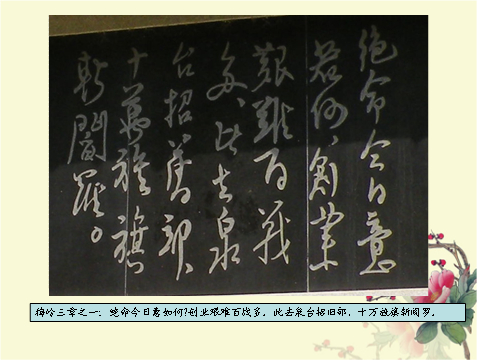 絶命今日意
若何、創業
艱難百戰
多、此去泉
台招舊部、
十萬旌旗
斬閻羅。
梅岭三章之一：绝命今日意如何?创业艰难百战多。此去泉台招旧部，十万旌旗斩阎罗。